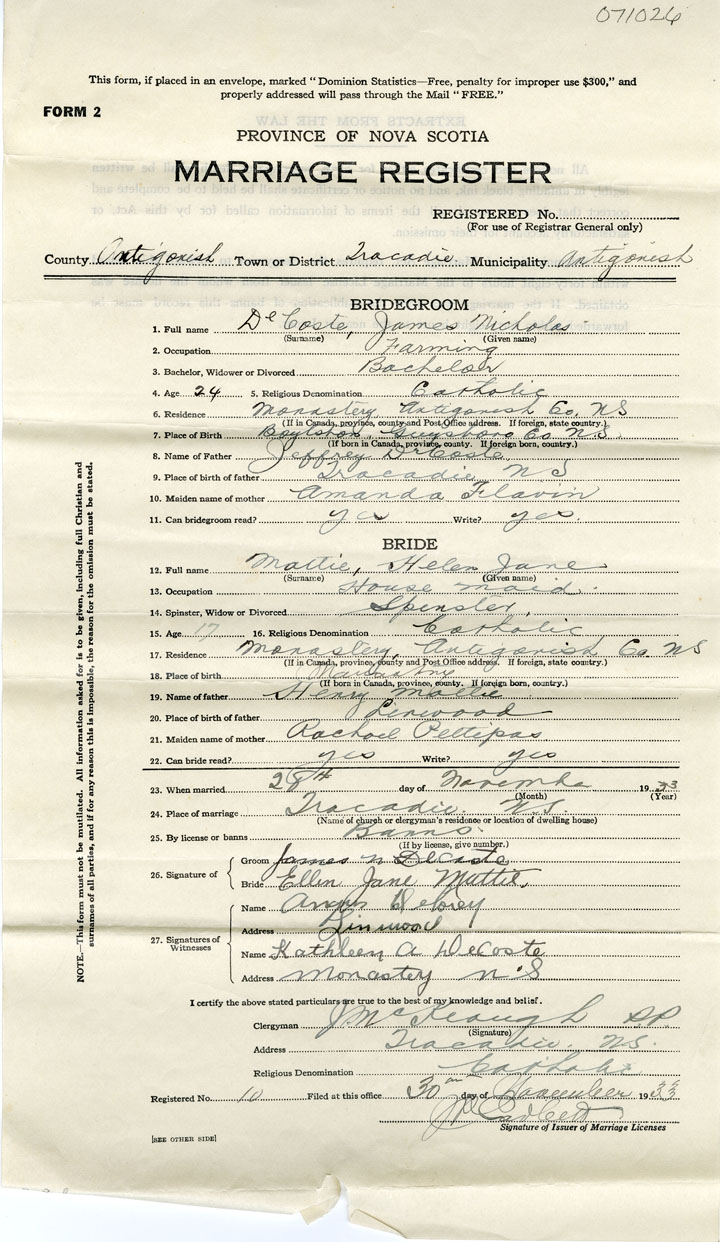 071026
This form, if placed in an envelope, marked "Dominion Statistics—Free, penalty for improper use $300," and
properly addressed will pass through the Mail "FREE."
FORM 2
PROVINCE OF NOVA SCOTIA
MARRIAGE REGISTER
REGISTERED No.
(For use of Registrar General only)
County Antigonish Town or District Tracadie Municipality Antigonish
BRIDEGROOM
1. Full name DeCoste, James Nicholas
(Surname) (Given name)
2. Occupation Farming
3. Bachelor, Widower or Divorced Bachelor
4. Age 24 5. Religious Denomination Catholic
6. Residence Monastery Antigonish Co. NS
(If in Canada, province, county and Post Office address. If foreign, state country.)
7. Place of Birth Boylston Guysboro Co N.S.
(If born in Canada, province, county. If foreign born, country.)
8. Name of Father Jeffrey DeCoste
9. Place of birth of father Tracadie N S
10. Maiden name of mother Amanda Flavin
11. Can bridegroom read? yes Write? yes
BRIDE
12. Full name Mattie, Helen Jane
(Surname) (Given name)
13. Occupation House maid
14. Spinster, Widow or Divorced Spinster
15. Age 17 16. Religious Denomination Catholic
17. Residence Monastery, Antigonish Co. NS
(If in Canada, province, county and Post Office address. If foreign, state country.)
18. Place of Birth
(If born in Canada, province, county. If foreign born, country.)
19. Name of father Henry Mattie
20. Place of birth of father Linwood
21. Maiden name of mother Rachael Pettipas
22. Can bride read? yes Write? yes
23. When married 28th day of November 1933
(Month) (Year)
24. Place of marriage Tracadie N.S.
(Name of church or clergyman's residence or location of dwelling house)
25. By license or banns Banns
(If by license, give number.)
26. Signature of Groom James N DeCoste
Bride Ellen Jane Mattie
27. Signatures of Witnesses Name Angus
Address Linwood
Name Kathleen A DeCoste
Address Monastery N.S
I certify the above stated particulars are true to the best of my knowledge and belief.
Clergyman J McKeough P.P.
(Signature)
Address Tracadie N.S.
Religious Denomination Catholic
Registered No. 10 Filed at this office 30th day of November 1933
Signature of Issuer of Marriage Licenses
[SEE OTHER SIDE]
NOTE.—This form must not be mutilated. All information asked for is to be given, including full Christian and
surnames of all parties, and if for any reason this is impossible, the reason for the omission must be stated.